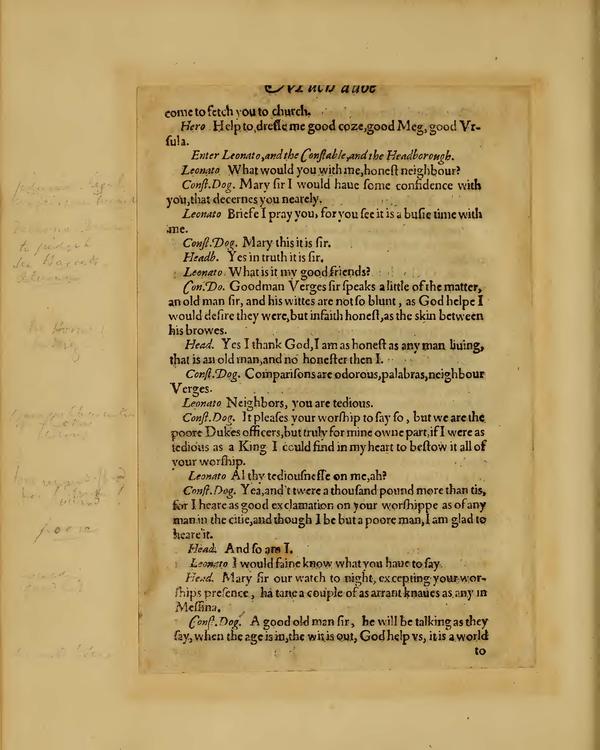 come to fetch you to church.
Hero Help to dresse me good coze, good Meg, good Vr-
sula.
Enter Leonato, and the Constable, and the Headborough.
Leonato What would you with me, honest neighbour?
Const.Dog. Mary sir I would haue some confidence with
you, that decernes you nearely.
Leonato Briefe I pray you, for you see it is a busie time with
me.
Const.Dog. Mary this it is sir.
Headb. Yes in truth it is sir.
Leonato What is it my good friends?
Con.Do. Goodman Verges sir speaks a little of the matter,
an old man sir, and his wittes are not so blunt, as God helpe I
would desire they were, but infaith honest, as the skin between
his browes.
Head. Yes I thank God, I am as honest as any man liuing,
that is an old man, and no honester then I.
Const.Dog. Comparisons are odorous, palabras, neighbour
Verges.
Leonato Neighbors, you are tedious.
Const.Dog. It pleases your worship to say so, but we are the
poore Dukes officers, but truly for mine owne part, if I were as
tedious as a King I could find in my heart to bestow it all of
your worship.
Leonato Al thy tediousnesse on me, ah?
Const.Dog. Yea, and't twere a thousand pound more than tis,
for I heare as good exclamation on your worshippe as of any
man in the citie, and though I be but a poore man, I am glad to
heare it.
Head. And so am I.
Leonato I would faine know what you haue to say.
Head. Mary sir our watch to night, excepting your wor-
ships presence, ha tane a couple of as arrant knaues as any in
Messina.
Const.Dog. A good old man sir, he will be talking as they
say, when the age is in, the wit is out, God help vs, it is a world
to